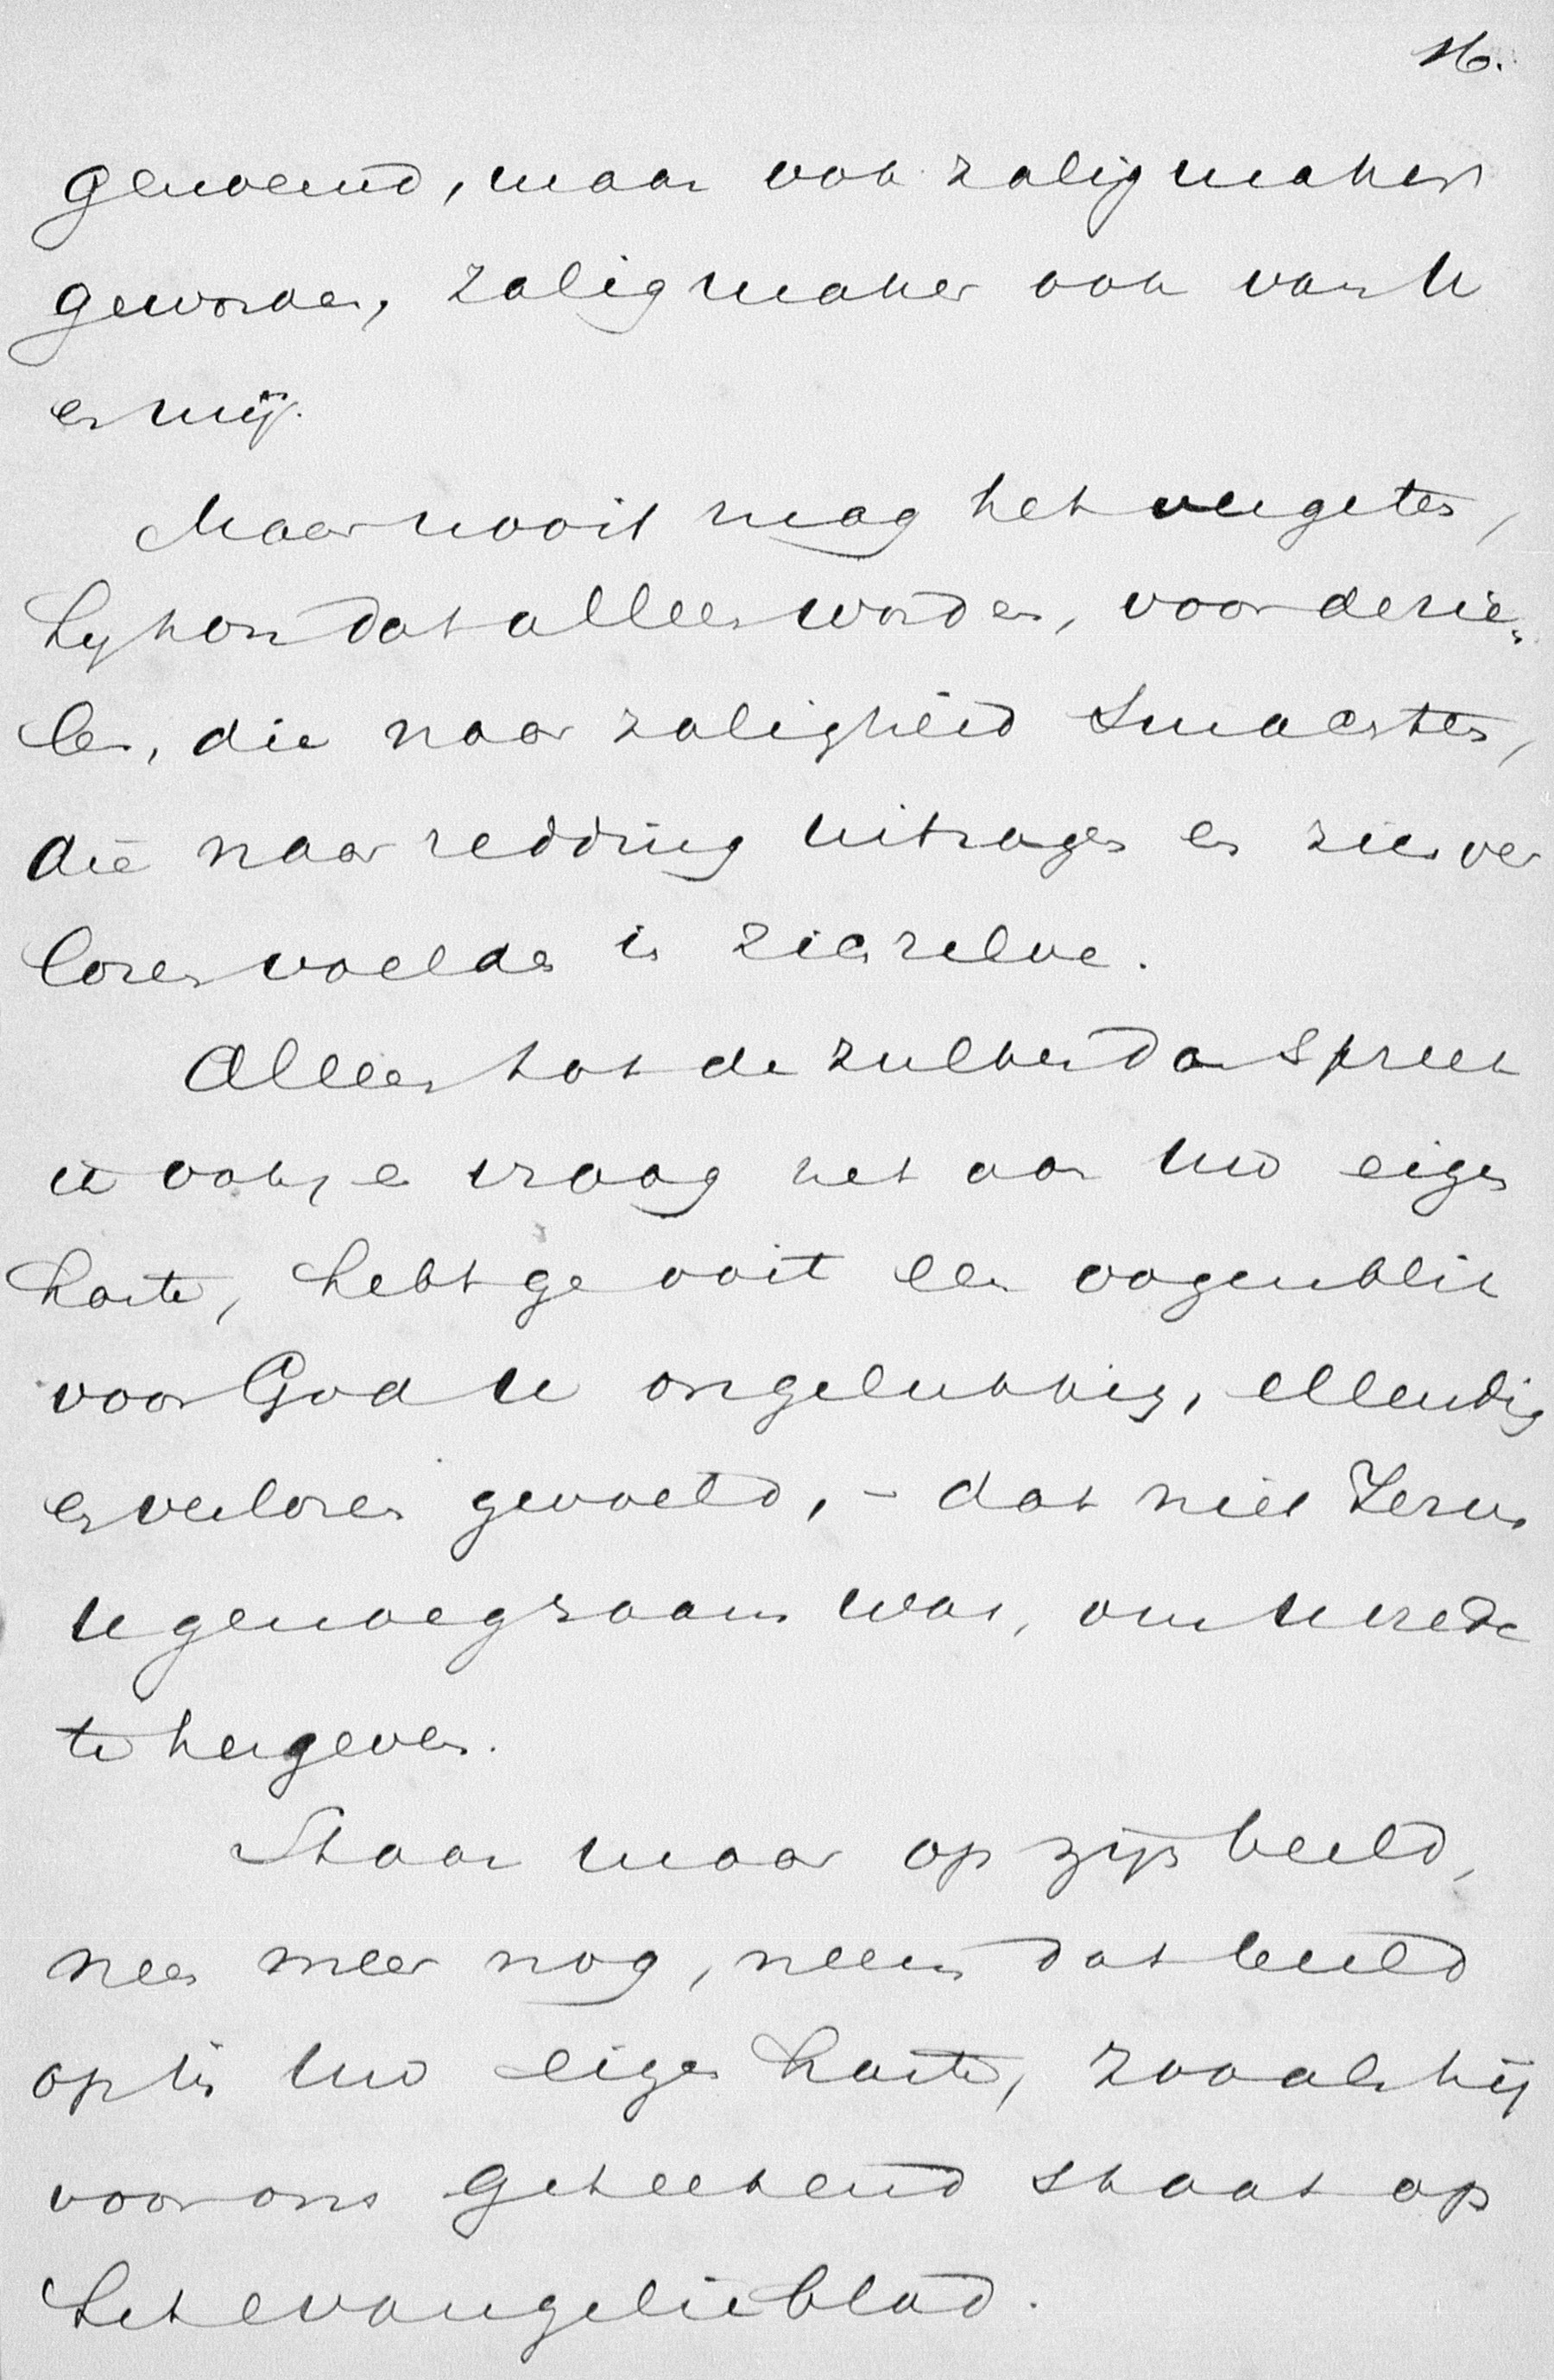 16.
genoemd, maar ook zaligmaker
geworden, zaligmaker ook van U
en mij.
Maar nooit mag het vergeten,
hij kon dat alleen worden, voor de zie-
len, die naar zaligheid smachten,
die naar redding uitzagen en zich ver
loren voelden in zichzelve.
Alleen tot de zulken dan spreek
ik ook, en vraag het aan Uw eigen
harte, hebt ge ooit een oogenblik
voor God U ongelukkig, ellendig
en verloren gevoeld, – dat niet Jezus
U genoegzaam was, om U vrede
te hergeven.
Staar maar op zijn beeld,
neen meer nog, neem dat beeld
op in Uw eigen harte, zooals hij
voor ons geteekend staat op
het evangelieblad.